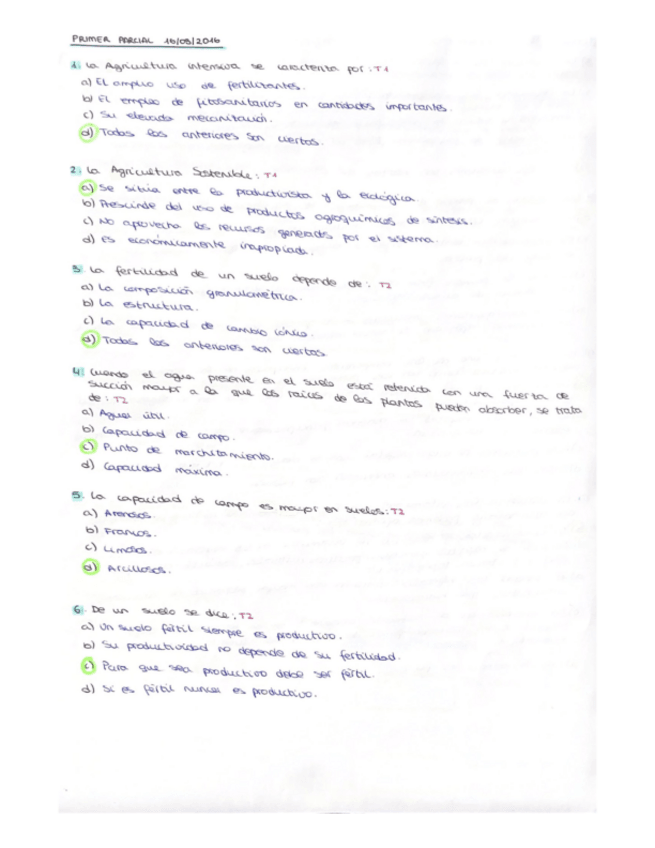 PRIMER PARCIAL 16/03/2016
1. La Agricultura intensiva se caracteriza por: T1
a) El amplio uso de fertilizantes.
b) El empleo de fitosanitarios en cantidades importantes.
c) Su elevada mecanización.
d) Todas las anteriores son ciertas.
2. La Agricultura Sostenible: T1
a) Se sitúa entre la productivista y la ecológica.
b) Prescinde del uso de productos agroquímicos de síntesis.
c) No aprovecha los recursos generados por el sistema.
d) Es económicamente inapropiada.
3. La fertilidad de un suelo depende de: T2
a) La composición granulométrica.
b) La estructura.
c) La capacidad de cambio iónico.
d) Todas las anteriores son ciertas
4. Cuando el agua presente en el suelo está retenida con una fuerza de
succión mayor a la que las raíces de las plantas pueden absorber, se trata
de: T2
a) Agua útil.
b) Capacidad de campo.
c) Punto de marchitamiento.
d) Capacidad máxima.
5. La capacidad de campo es mayor en suelos: T2
a) Arenosos.
b) Francos.
c) Limosos.
d) Arcillosos.
6. De un suelo se dice: T2
a) Un suelo fértil siempre es productivo.
b) Su productividad no depende de su fertilidad.
c) Para que sea productivo debe ser fértil.
d) Si es fértil nunca es productivo.